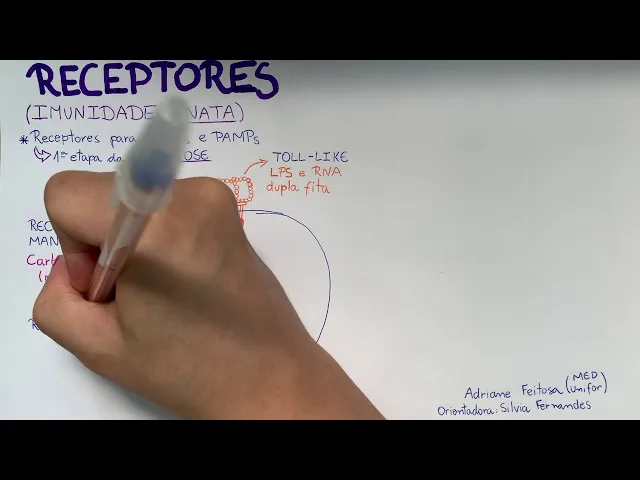 RECEPTORES
(IMUNIDADE NATA)
* Receptores para e PAMPs
1ª etapa da OSE
TOLL-LIKE
LPS e RNA
dupla fita
REC
MAN
Carb
Adriane Feitosa (MED Unifor)
Orientadora: Silvia Fernandes